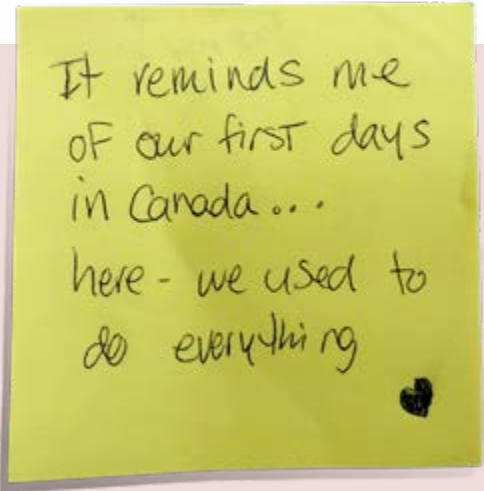 It reminds me
of our first days
in Canada...
here - we used to
do everything